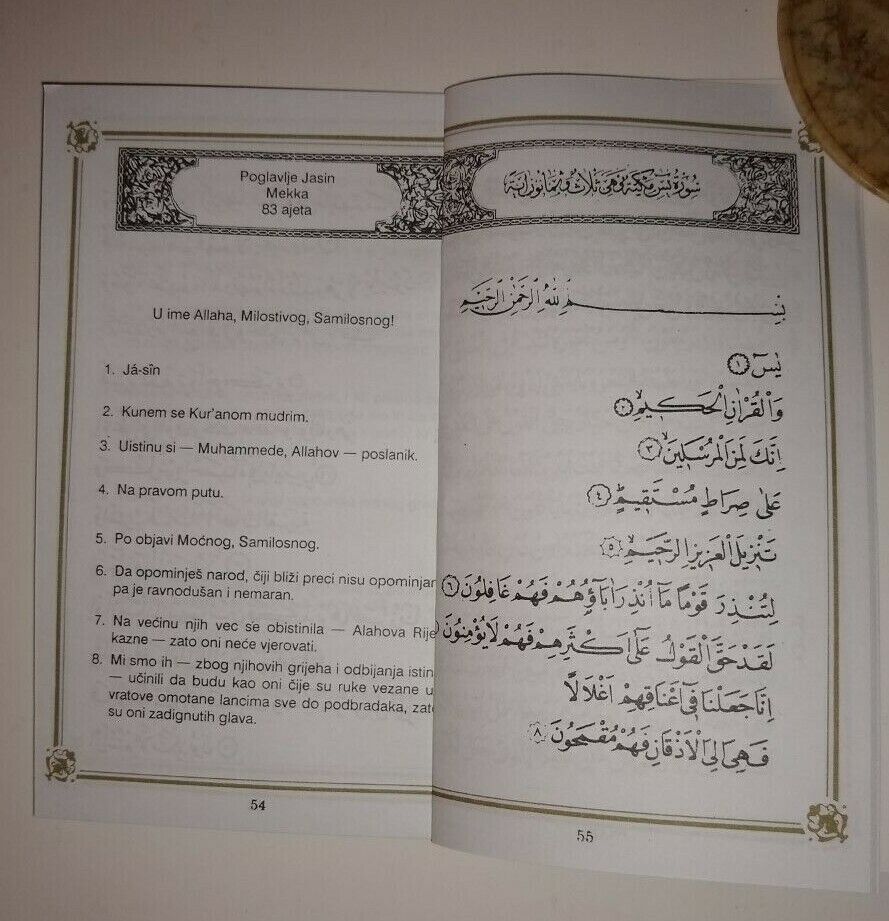 Poglavlje Jasin
Mekka
83 ajeta
U ime Allaha, Milostivog, Samilosnog!
1. Já-sîn
2. Kunem se Kur'anom mudrim.
3. Uistinu si — Muhammede, Allahov — poslanik.
4. Na pravom putu.
5. Po objavi Moćnog, Samilosnog.
6. Da opominješ narod, čiji bliži preci nisu opominjan
pa je ravnodušan i nemaran.
7. Na većinu njih vec se obistinila — Alahova Rije
kazne — zato oni neće vjerovati.
8. Mi smo ih — zbog njihovih grijeha i odbijanja istin
— učinili da budu kao oni čije su ruke vezane u
vratove omotane lancima sve do podbradaka, zato
su oni zadignutih glava.
54
سُورَةُ يٰسٓ مَكِّيَّةٌ وَهِيَ ثَلَاثٌ وَثَمَانُونَ اٰيَةً
بِسْمِ اللّٰهِ الرَّحْمٰنِ الرَّحِيمِ
يٰسٓ ﴿١﴾
وَالْقُرْاٰنِ الْحَكِيمِۙ ﴿٢﴾
اِنَّكَ لَمِنَ الْمُرْسَلِينَۙ ﴿٣﴾
عَلٰى صِرَاطٍ مُسْتَقِيمٍۜ ﴿٤﴾
تَنْزِيلَ الْعَزِيزِ الرَّحِيمِۙ ﴿٥﴾
لِتُنْذِرَ قَوْمًا مَٓا اُنْذِرَ اٰبَٓاؤُ۬هُمْ فَهُمْ غَافِلُونَ ﴿٦﴾
لَقَدْ حَقَّ الْقَوْلُ عَلٰٓى اَكْثَرِهِمْ فَهُمْ لَا يُؤْمِنُونَ
اِنَّا جَعَلْنَا فِٓى اَعْنَاقِهِمْ اَغْلَالًا
فَهِىَ اِلَى الْاَذْقَانِ فَهُمْ مُقْمَحُونَ ﴿٨﴾
55